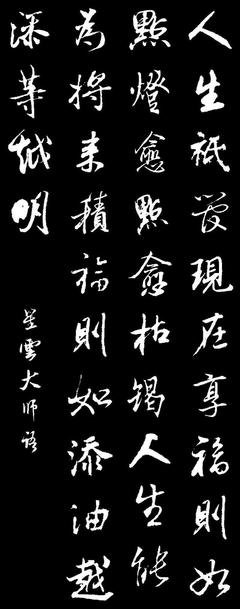 人生祇營現在享福則如
點燈愈點愈枯竭人生能
為將來積福則如添油越
添等越明
星雲大师語